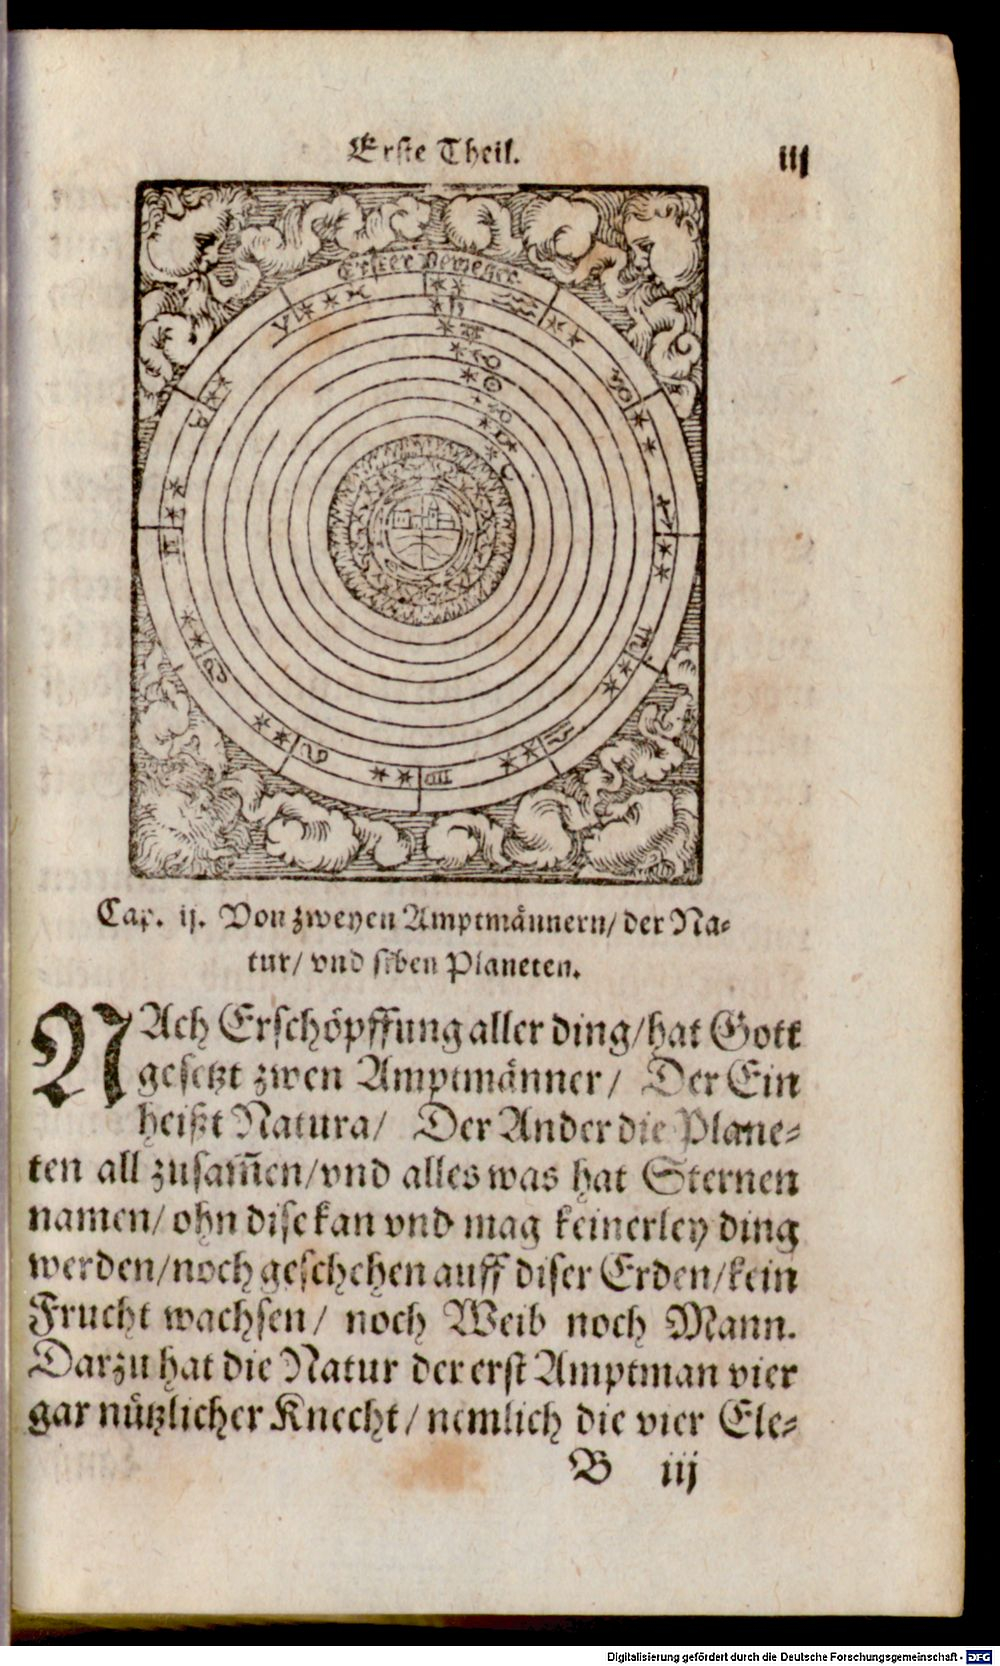 Erste Theil. iij
Erster Beweger
Cap. ij. Von zweyen Amptmännern/ der Na-
tur/ vnd siben Planeten.
NAch Erschöpffung aller ding/ hat Gott
gesetzt zwen Amptmänner/ Der Ein
heißt Natura/ Der Ander die Plane-
ten all zusam̄en/ vnd alles was hat Sternen
namen/ ohn dise kan vnd mag keinerley ding
werden/ noch geschehen auff diser Erden/ kein
Frucht wachsen/ noch Weib noch Mann.
Darzu hat die Natur der erst Amptman vier
gar nützlicher Knecht/ nemlich die vier Ele-
B iij
Digitalisierung gefördert durch die Deutsche Forschungsgemeinschaft - DFG